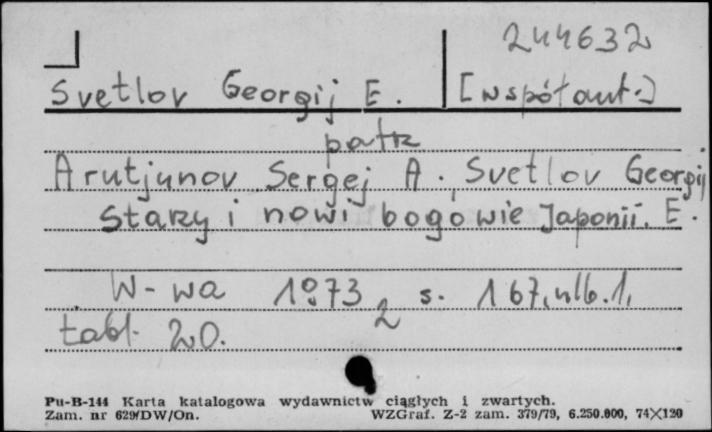 244632
Svetlov Georgij E. [współaut.]
patrz
Arutjunov Sergej A., Svetlov Georgij
Starzy i nowi bogowie Japonii. E.
W-wa 1973 s. 167, nlb. 1,
2
tabl. 20.
Pu-B-144 Karta katalogowa wydawnictw ciągłych i zwartych.
Zam. nr 629/DW/On. WZGraf. Z-2 zam. 379/79, 6.250.000, 74×120